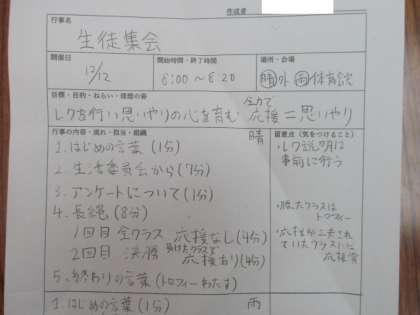 作成者
行事名
生徒集会
開催日
開始時間・終了時間
場所・会場
12/12
8:00〜8:20
晴外 雨体育館
目標・目的・ねらい・理想の姿
全力で
レクを行い思いやりの心を育む 応援=思いやり
行事の内容・流れ・担当・組織
晴
留意点(気をつけること)
1.はじめの言葉(1分)
2.生活委員会から(7分)
3.アンケートについて(1分)
4.長縄(8分)
1回目 全クラス 応援なし(4分)
2回目 決勝 負けたクラスで 応援あり(4分)
5.終わりの言葉(トロフィーわたす)
・レク説明は
事前に行う
・勝ったクラスは
トロフィー
・応援が工夫され
ていたクラスには
応援賞
1.はじめの言葉(1分)
雨